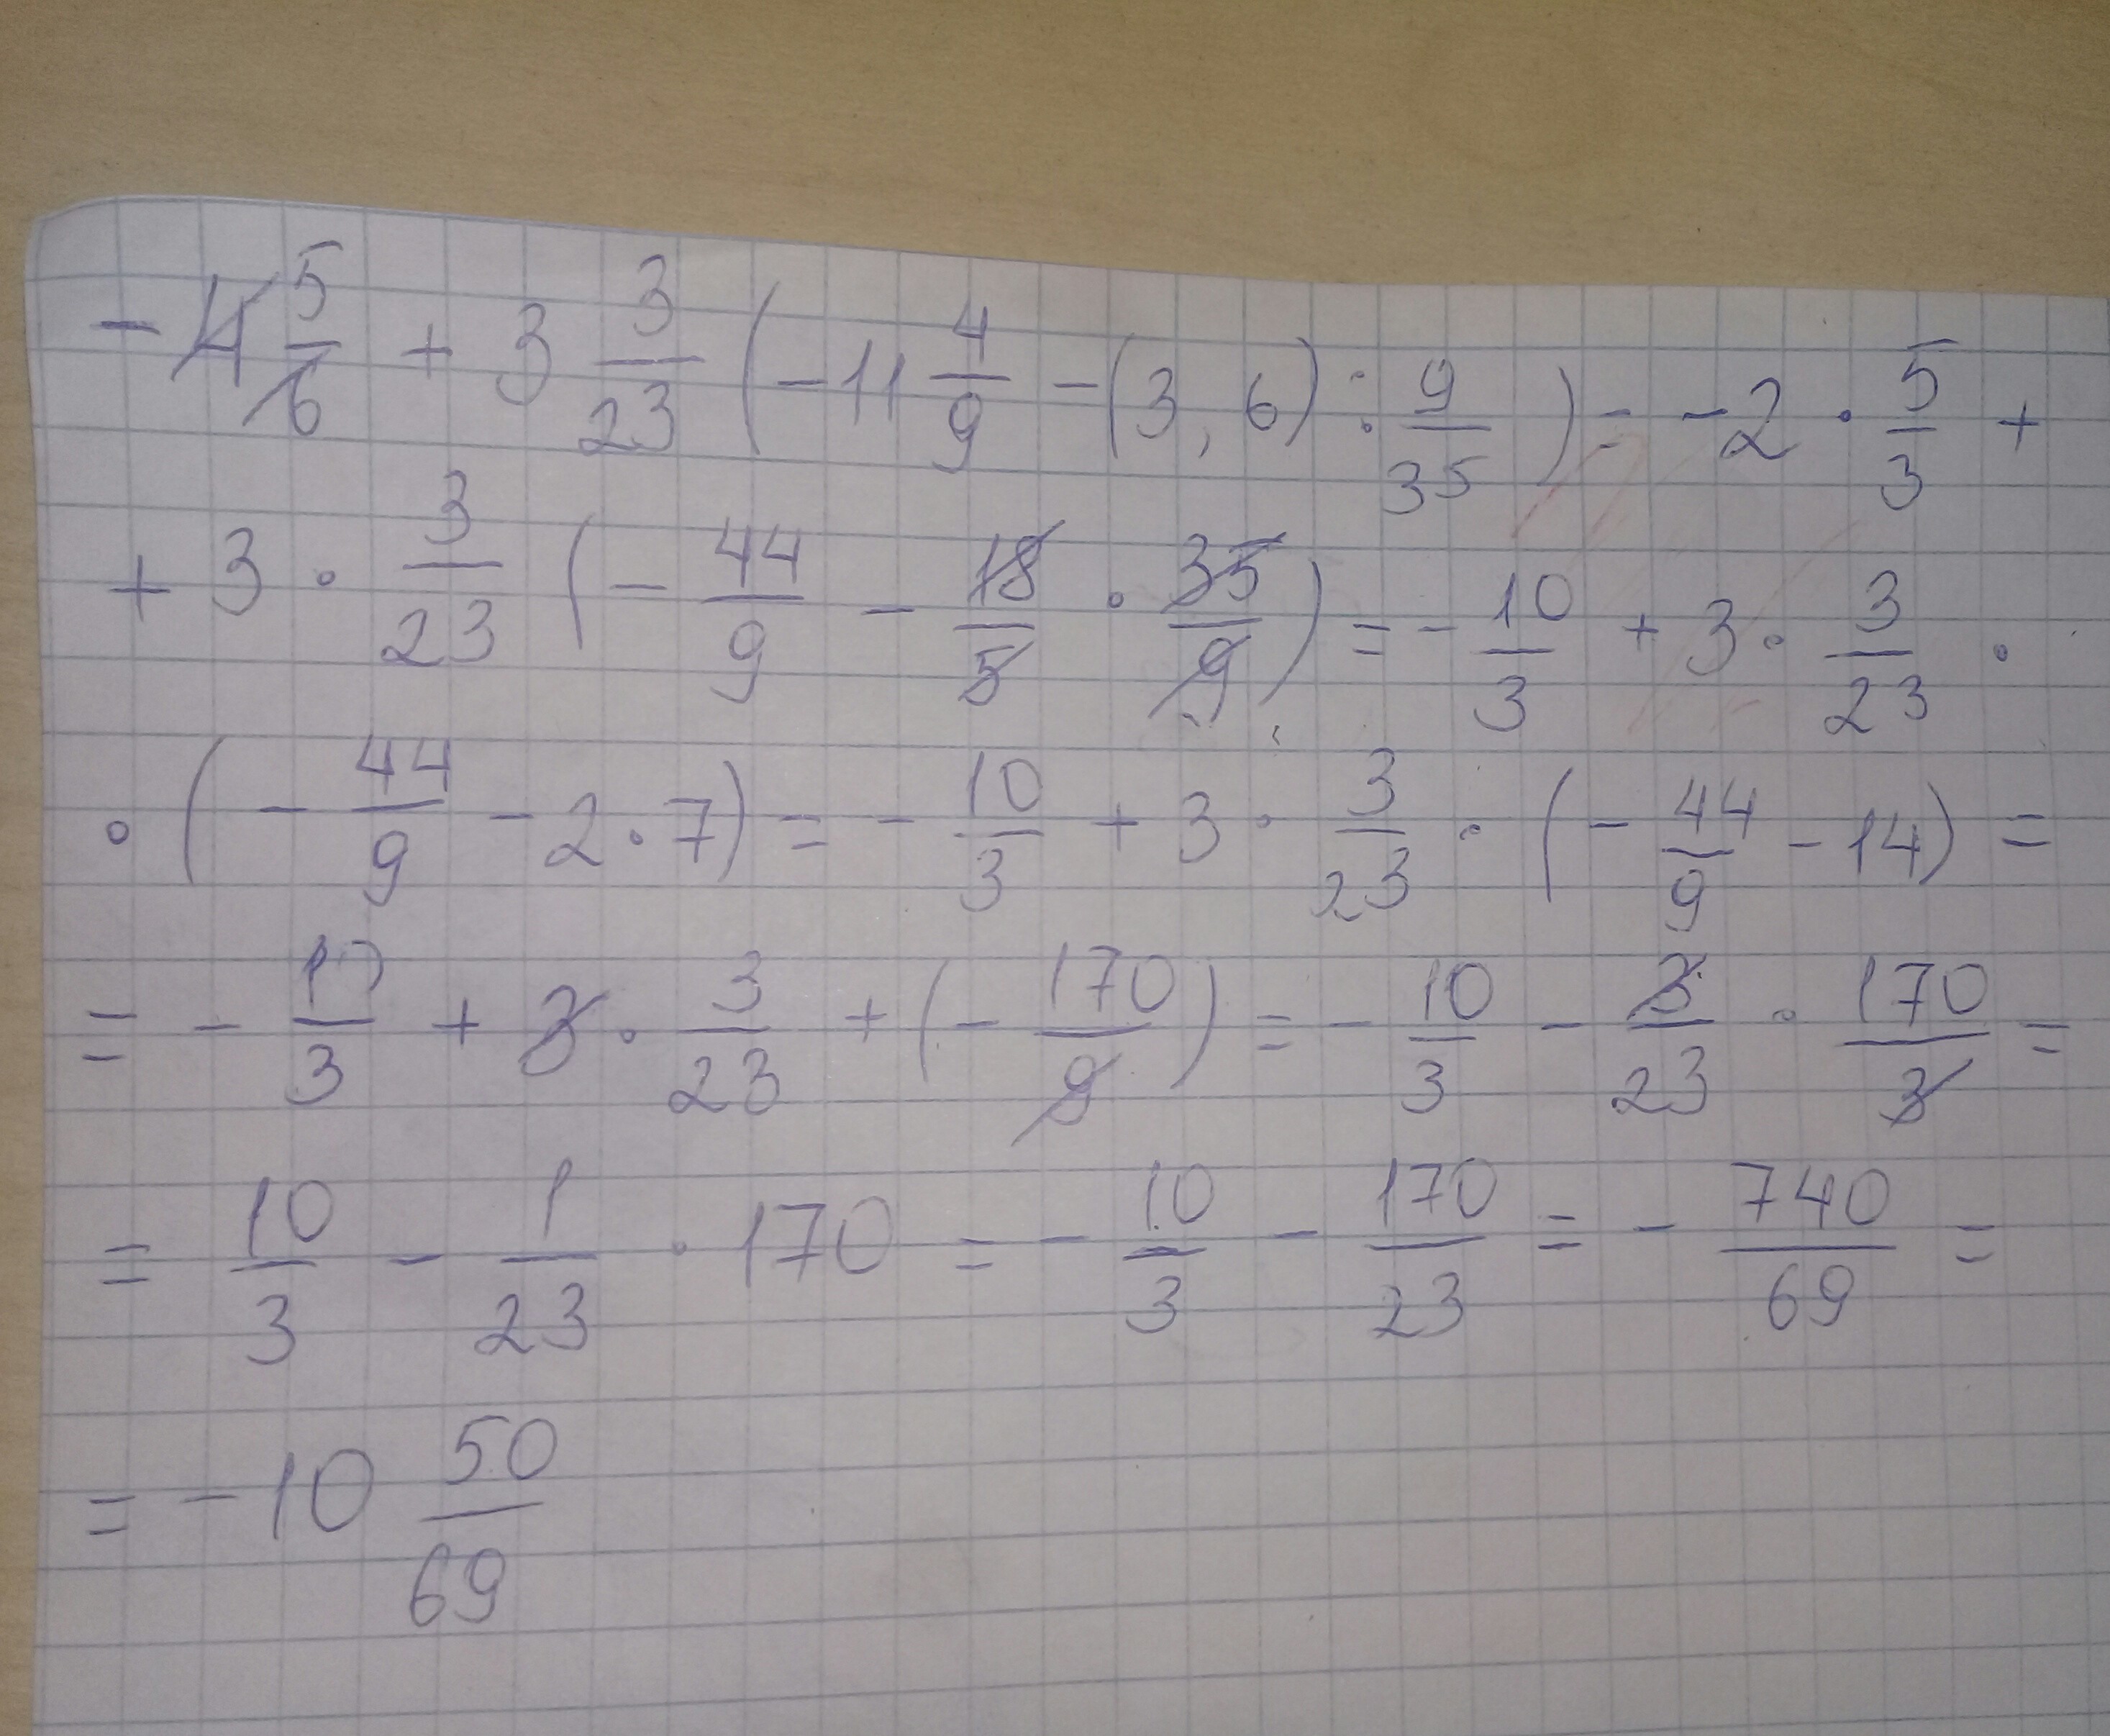 -4 5/6 + 3 3/23 (-11 4/9 - (3,6) : 9/35) = -2 · 5/3 +
+ 3 · 3/23 (- 44/9 - 18/5 · 35/9) = - 10/3 + 3 · 3/23 ·
· (- 44/9 - 2 · 7) = - 10/3 + 3 · 3/23 · (- 44/9 - 14) =
= - 10/3 + 3 · 3/23 + (- 170/9) = - 10/3 - 3/23 · 170/3 =
= 10/3 - 1/23 · 170 = - 10/3 - 170/23 = - 740/69 =
= - 10 50/69